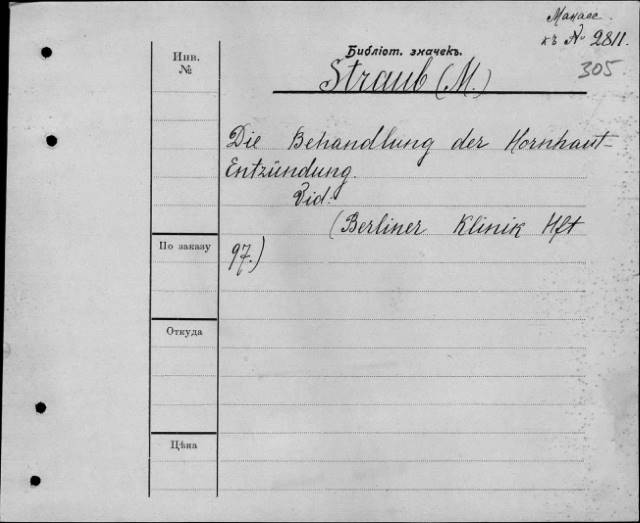 Макасс.
къ № 2811.
305
Библіот. значекъ.
Straub (M.)
Инв.
№
Die Behandlung der Hornhaut-
Entzündung.
Vid:
(Berliner Klinik Hft
По заказу
97.)
Откуда
Цѣна